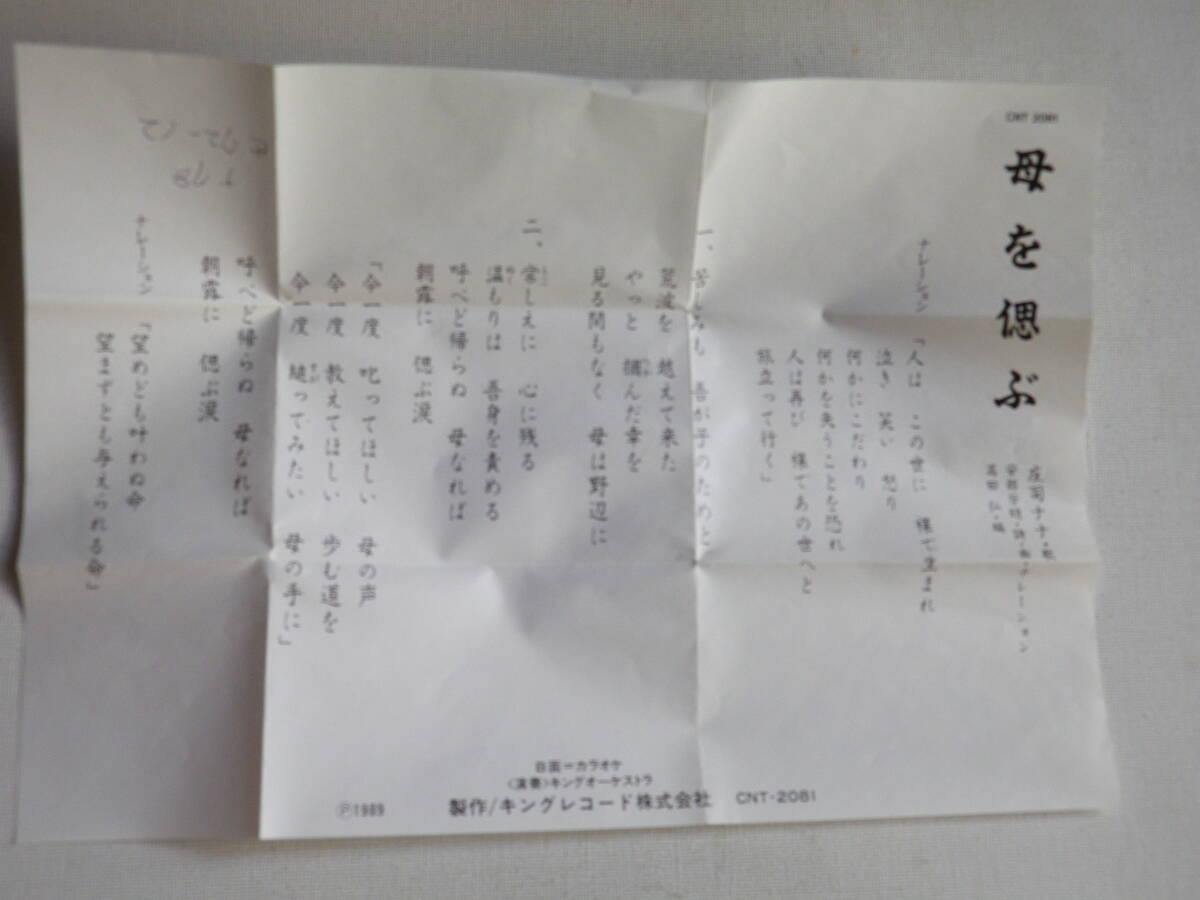 CNT 2081
母を偲ぶ
庄司ナナ・歌
・詩・曲・ナレーション
高田 弘・編
ナレーション 「人は この世に 裸で生まれ
泣き 笑い 怒り
何かにこだわり
何かを失うことを恐れ
人は再び 裸であの世へと
旅立って行く」
一、苦しみも 吾が子のためと
荒波を 越えて来た
やっと 掴んだ幸を
見る間もなく 母は野辺に
二、常しえに 心に残る
温もりは 吾身を責める
呼べど帰らぬ 母なれば
朝露に 偲ぶ涙
「今一度 叱ってほしい 母の声
今一度 教えてほしい 歩む道を
今一度 縋ってみたい 母の手に」
呼べど帰らぬ 母なれば
朝露に 偲ぶ涙
ナレーション 「望めども叶わぬ命
望まずとも与えられる命」
B面=カラオケ
〈演奏〉キングオーケストラ
Ⓟ1989 製作/キングレコード株式会社 CNT-2081